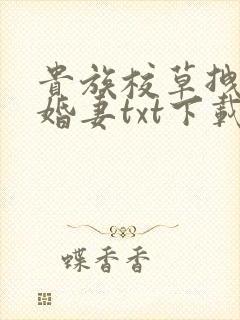 貴族校草拽
婚妻txt下載
蝶香香